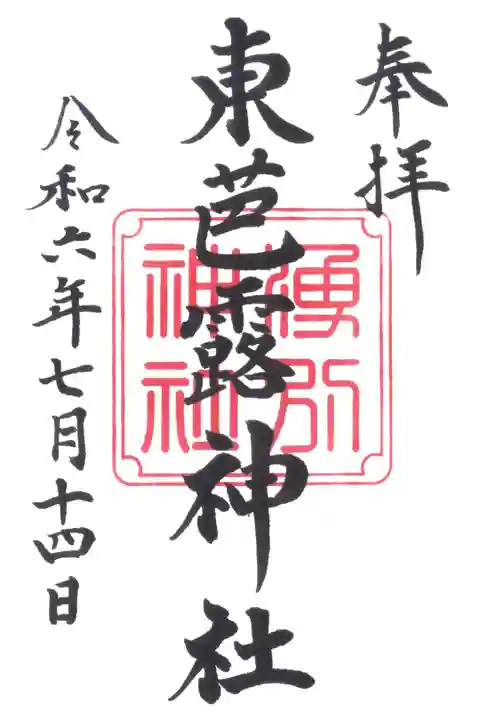 奉拝
東芭露神社
湧別
神社
令和六年七月十四日